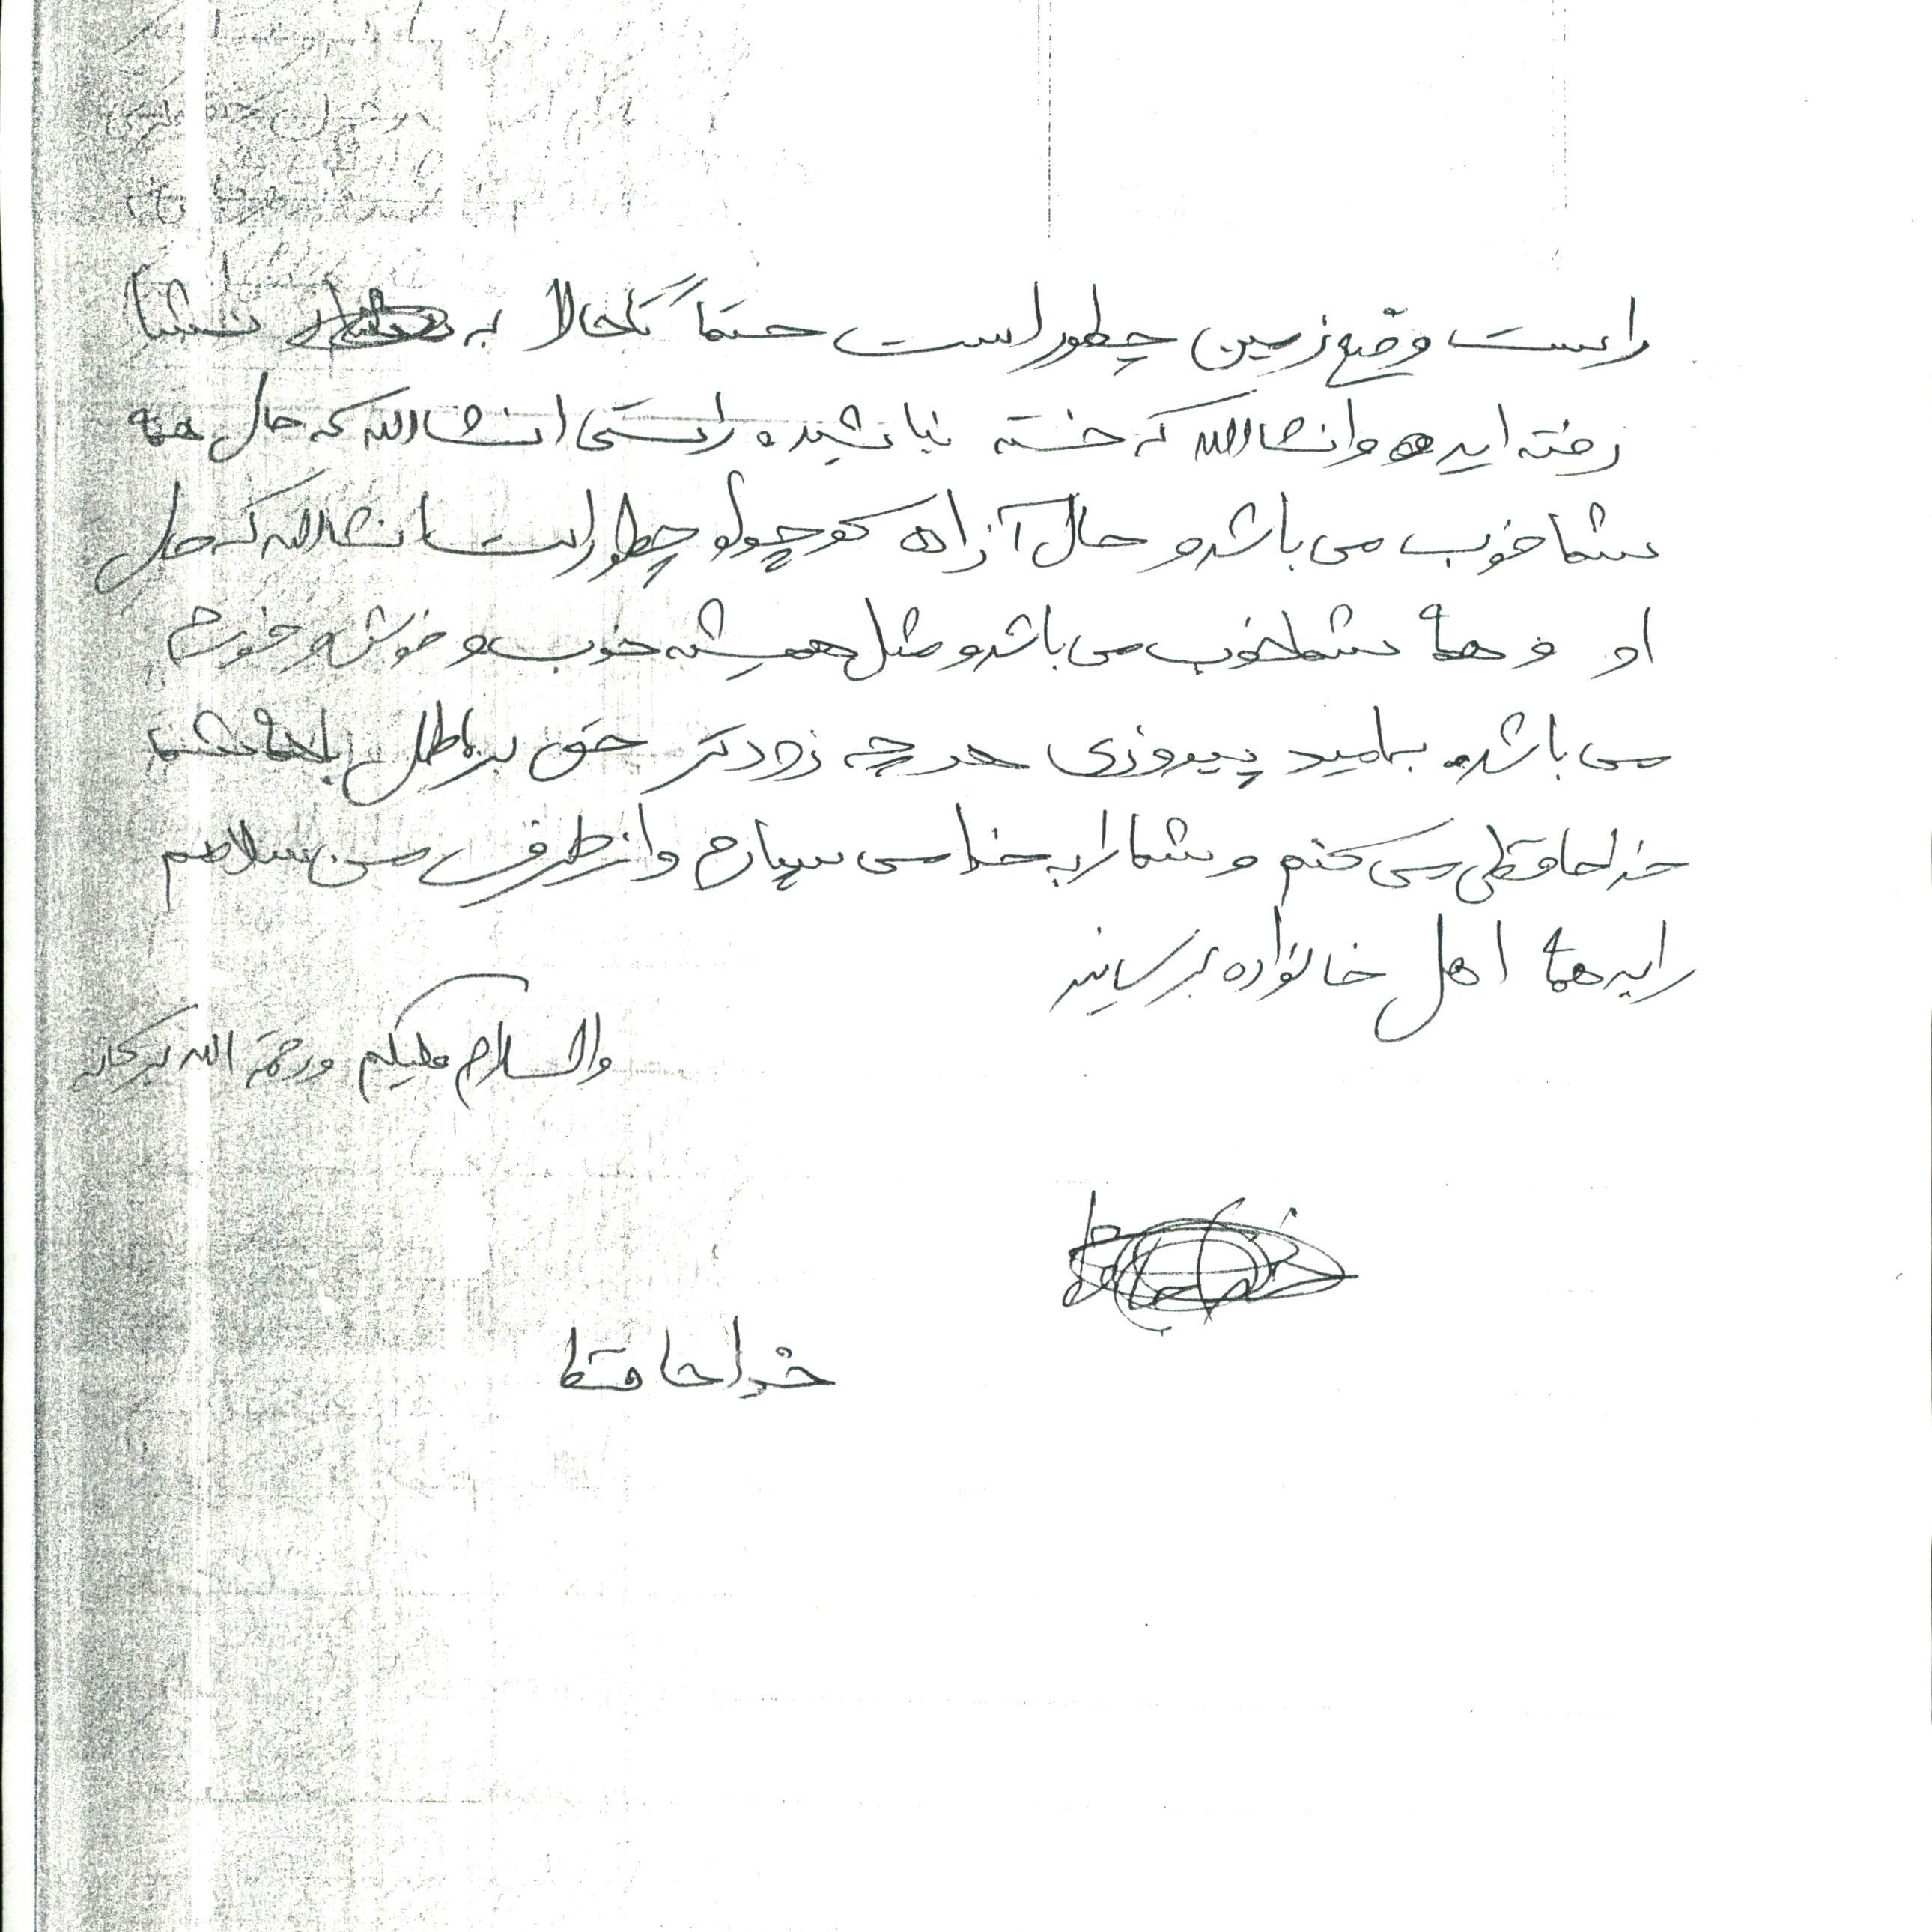 راست وضع زمین چطور است حتماً تا حالا به نشتبا
رفته اید و انشاالله که خسته نباشید. راستی انشاالله که حال همه
شما خوب می باشد و حال آزاده کوچولو چطور است انشاالله که حال
او و همۀ شما خوب می باشد و مثل همیشه خوب و خوش و خورم
می باشد. بامید پیروزی هر چه زودتر حق بر باطل با همۀ شما
خداحافظی می کنم و شما را به خدا می سپارم و از طرف من سلامم
را به همۀ اهل خانواده برسانید
والسلام علیکم ورحمة الله برکاته
خداحافظ